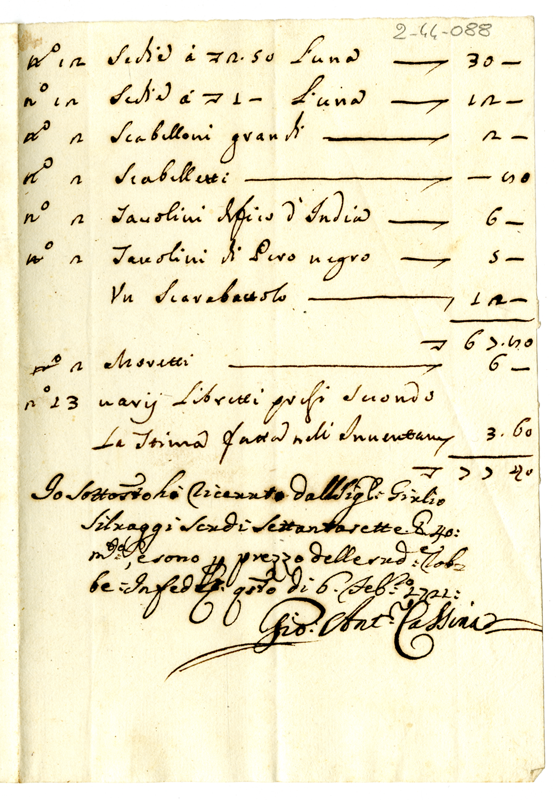 2-44-088
n.o 12 Sedie à 2.50 l'una 30 –
n.o 12 Sedie à 1 – l'una 12 –
n.o 2 Scabelloni grandi 2 –
n.o 2 Scabelletti – 80
n.o 2 Tauolini di fico d'India 6 –
n.o 2 Tauolini di Pero negro 5 –
Un Scarabattolo 12 –
67.80
n.o 2 Moretti 6 –
n.o 13 uarij Libretti presi secondo
La Stima fatta nell Inuentario 3.60
77 40
Io sottostto hò riceuuto dall Sig.r Giulio
Seluaggi Scudi Settantasette & 40:
m.ta, e sono p prezzo delle sud.e Rob=
be = In fede qsto di 6. Feb.ro
Gio: Ant.o Cassina